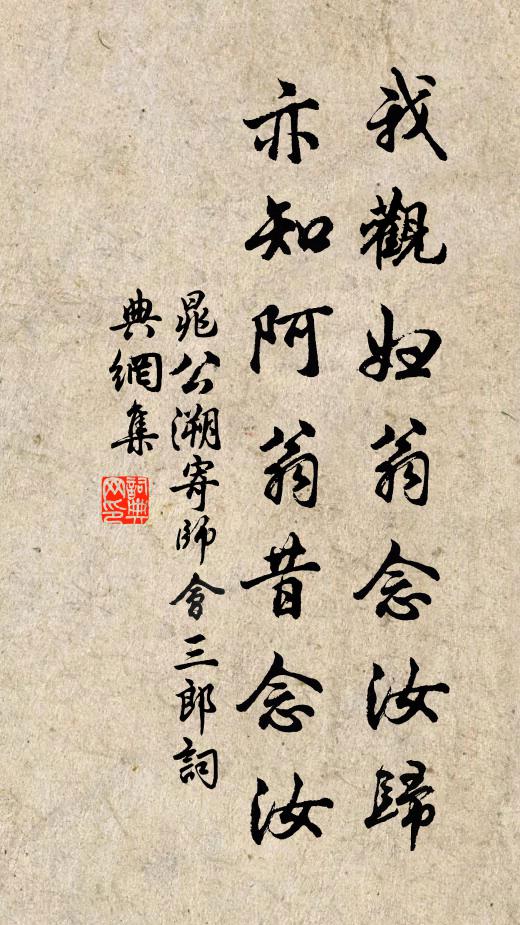 我觀妇翁念汝歸
亦知阿翁昔念汝
晁公溯寄師會三郎詞
典網集
詞典网印